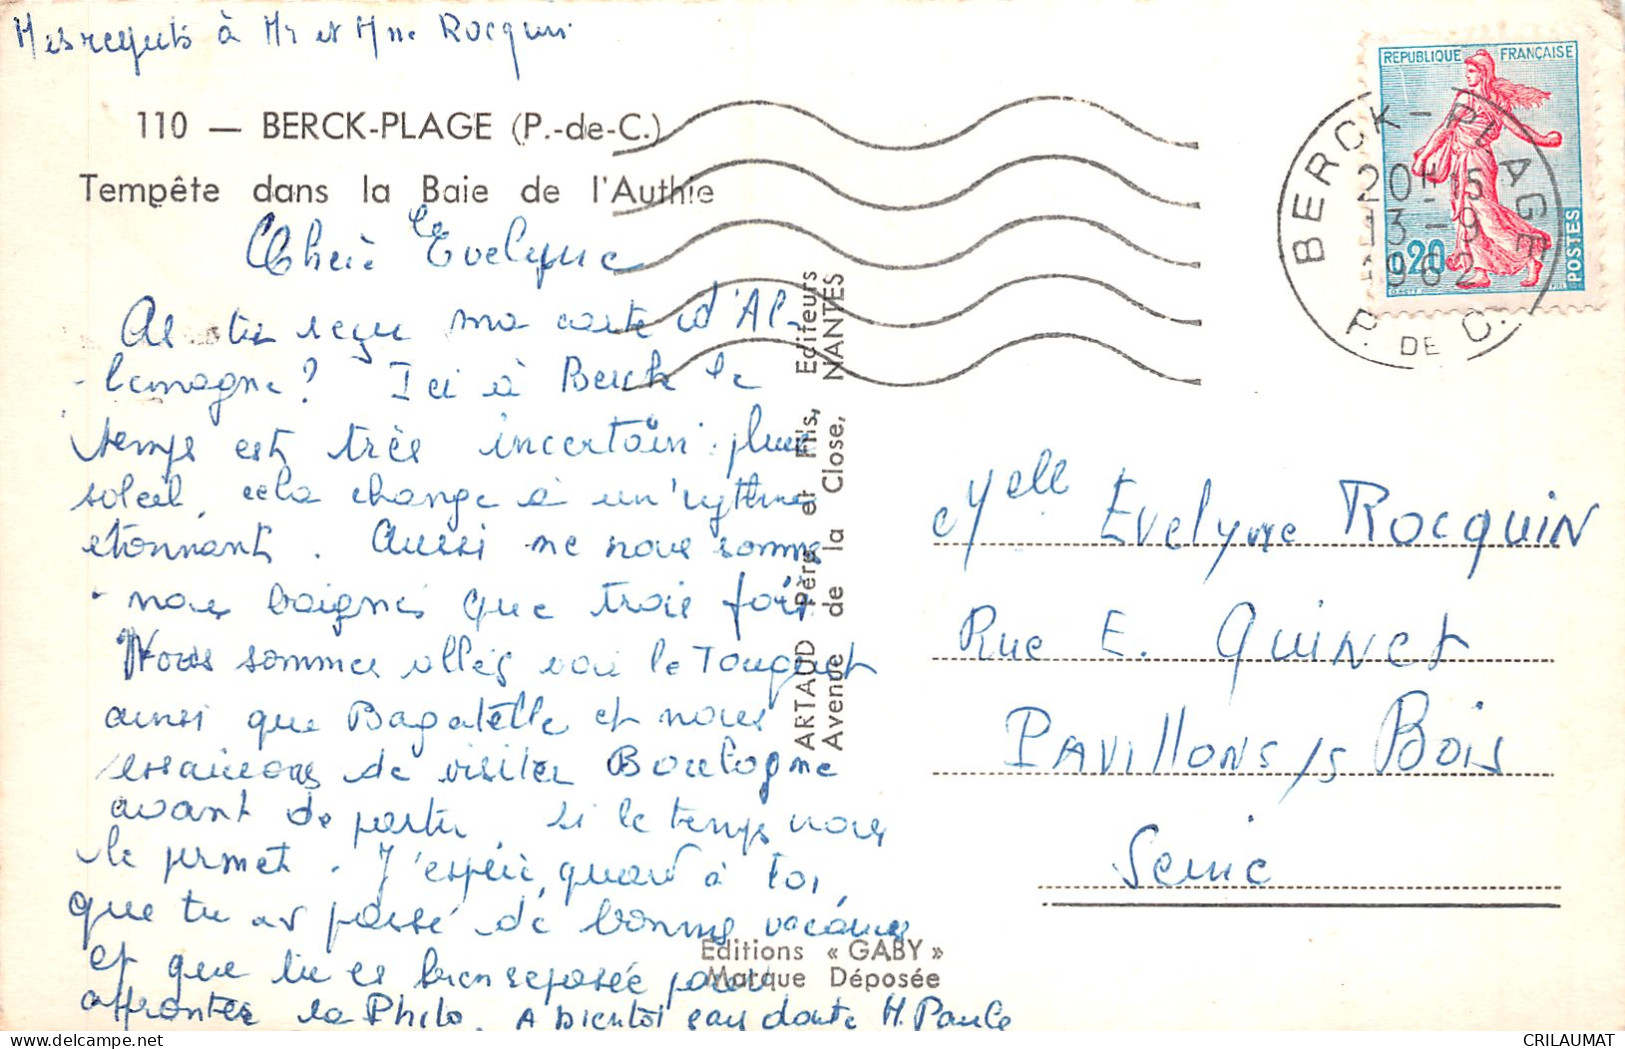 Mes respects à Mr et Mme Rocquin
110 — BERCK-PLAGE (P.-de-C.)
Tempête dans la Baie de l'Authie
Chère Evelyne
As tu reçu ma carte d'Al-
-lemagne ? Ici à Berck le
temps est très incertain : pluie
soleil, cela change à un rythme
étonnant. Aussi ne nous sommes
nous baignés que trois fois
Nous sommes allés voir le Touquet
ainsi que Bagatelle et nous
essaierons de visiter Boulogne
avant de partir, si le temps nous
le permet. J'espère, quand à toi,
que tu as passé de bonnes vacances
et que tu es bien reposée pour
affronter la Philo. A bientôt sans doute M. Paule
ARTAUD Père et Fils, Editeurs
Avenue de la Close, NANTES
Editions « GABY »
Marque Déposée
REPUBLIQUE FRANÇAISE
0,20
POSTES
BERCK-PLAGE
20H15
13-9
1962
P. DE C.
Melle Evelyne ROCQUIN
Rue E. QUINET
PAVILLONS/S BOIS
Seine
CRILAUMAT